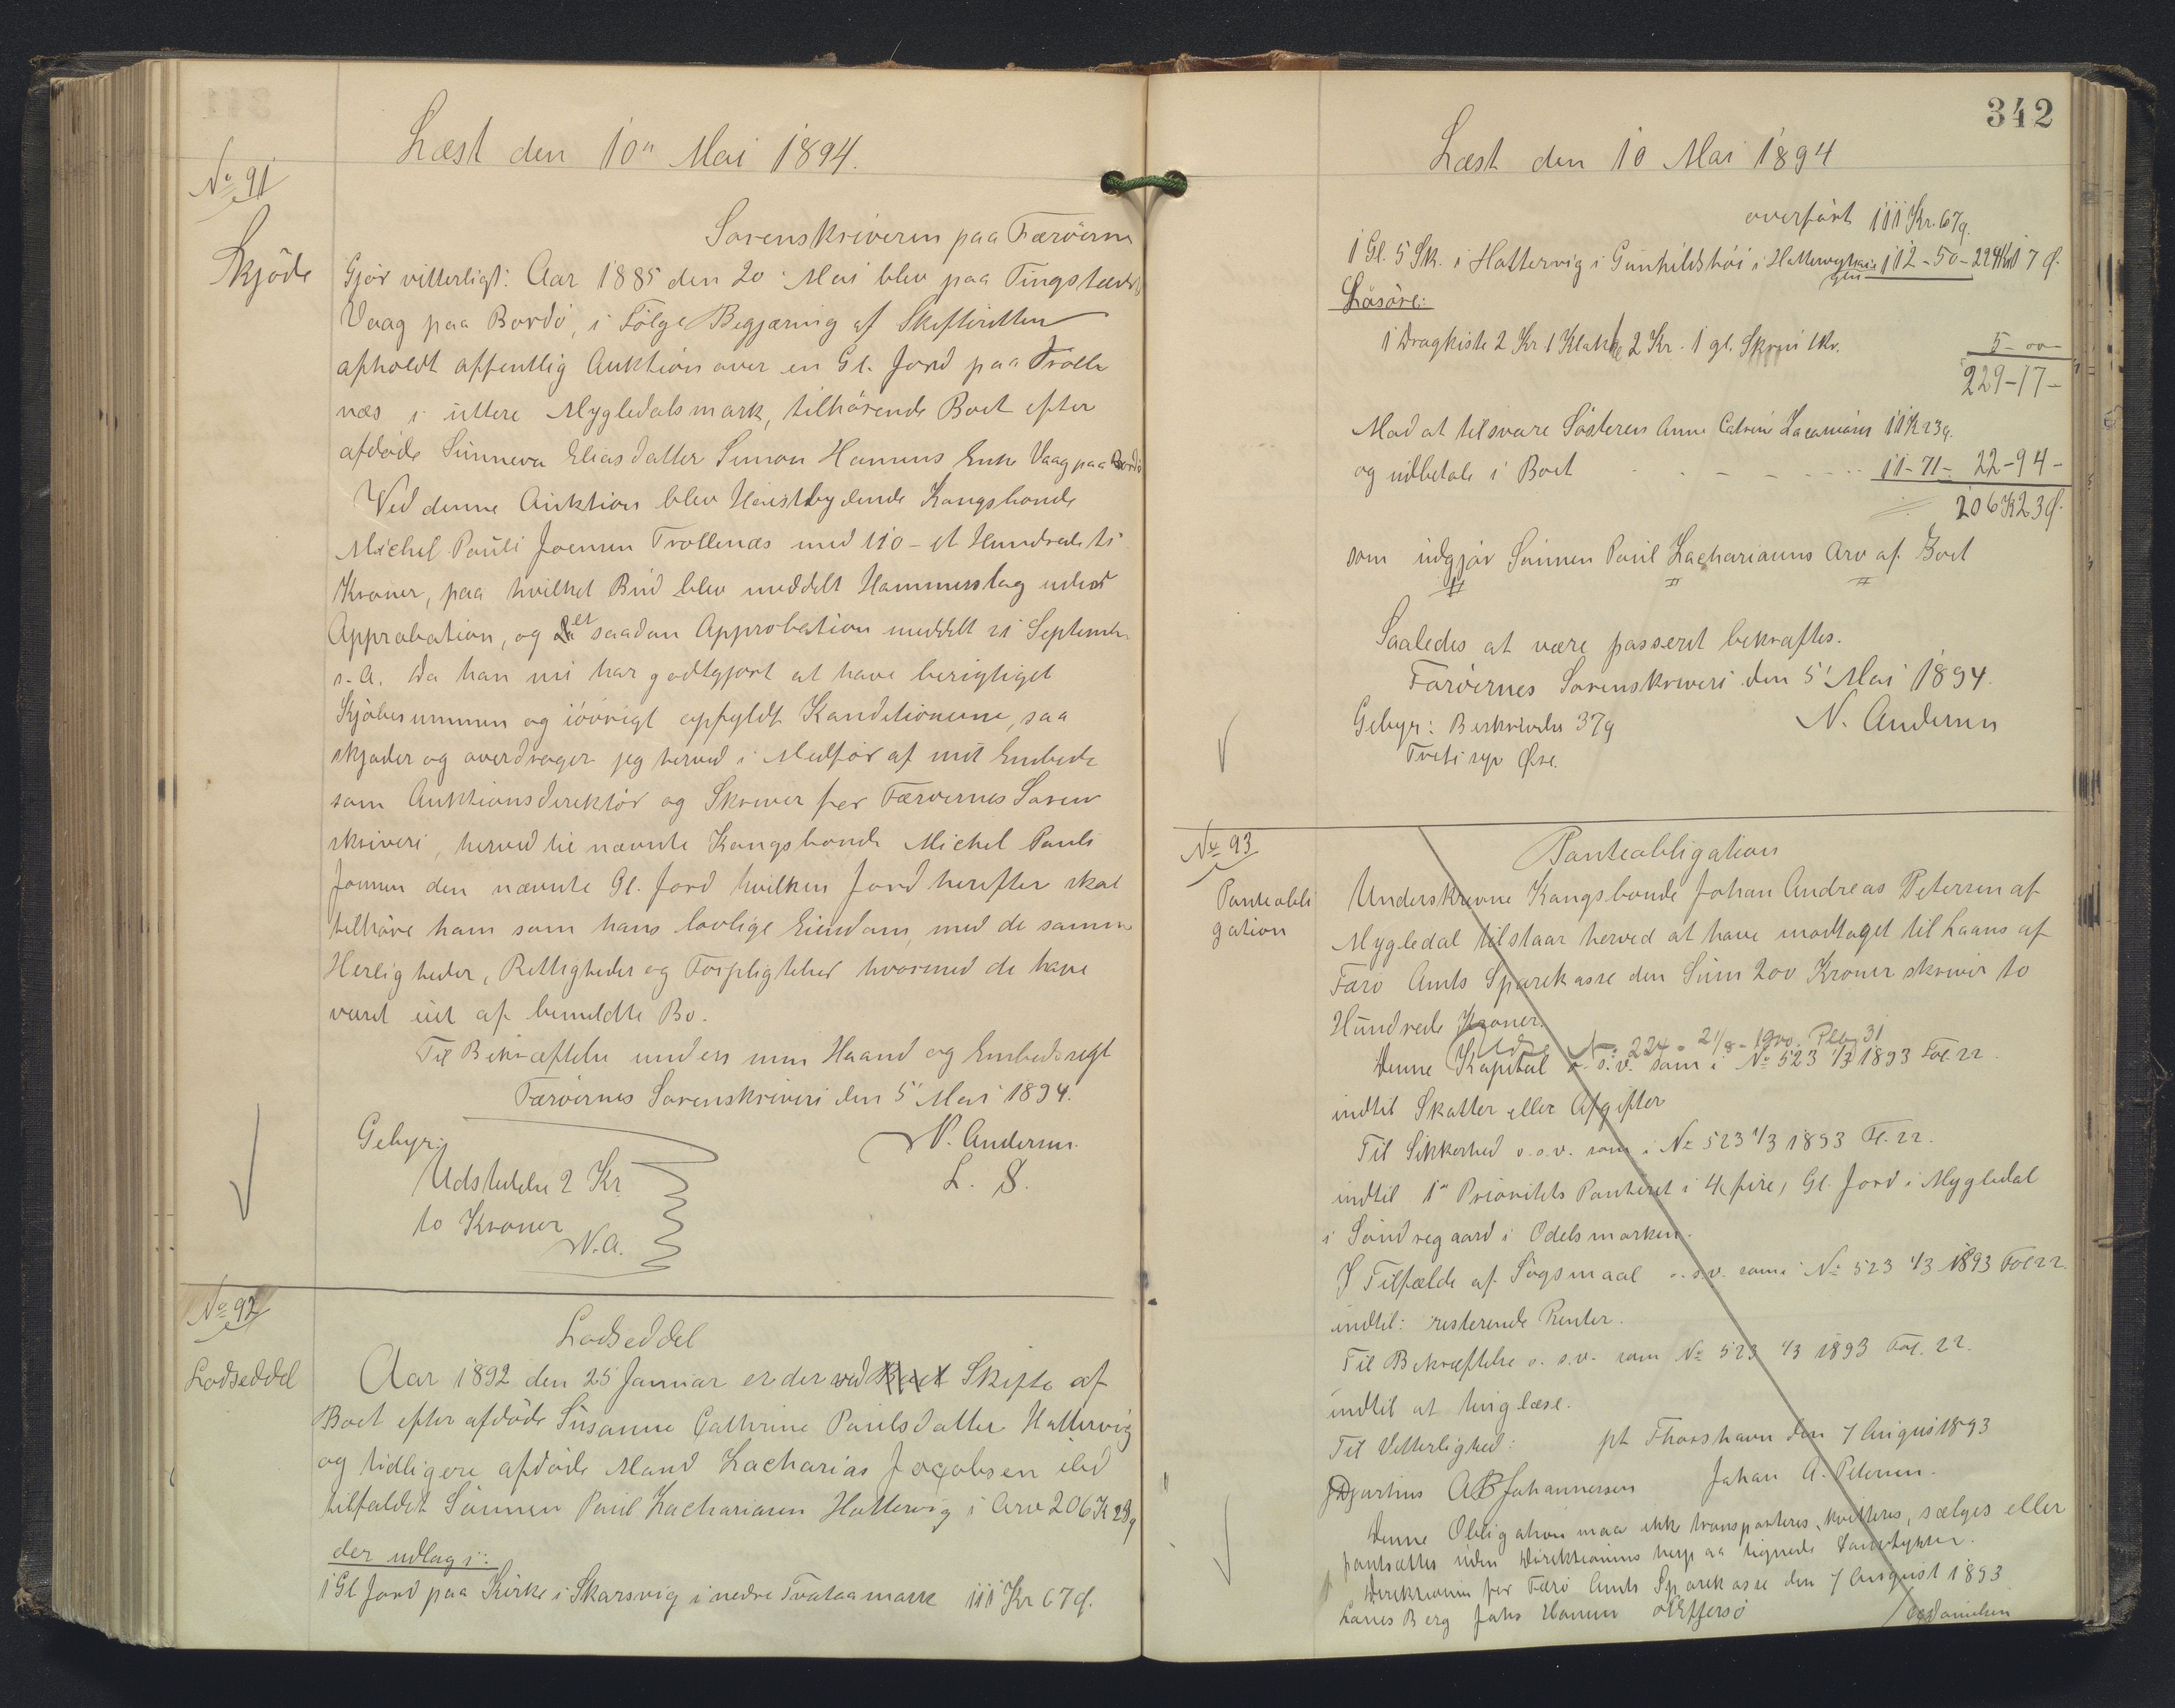 Læst den 10" Mai 1894.
No 91
Skjöde
Sorenskriveren paa Færöerne
Gjör vitterligt: Aar 1885 den 20 Mai blev paa Tingstedet
Vaag paa Bordö, i Fölge Begjæring af Skifteretten
afholdt offentlig Auktion over en Gl. Jord paa Trolle
næs i üttere Mygledals mark, tilhörende Boet efter
afdöde Sünneva Eliasdatter Simon Hanuns Enke Vaag paa Bordö
Ved denne Auktion blev Höistbydende Kongsbonde
Michel Pauli Joensen Trollenæs med 110 - et Hundrede ti
Kroner, paa hvilket Bud blev meddelt Hammerslag under
Approbation, og er saadan Approbation meddelt 21 Septemb.
s. A. Da han nü har godtgjort at have berigtiget
Kjöbesummen og iövrigt opfyldt Konditionerne, saa
skjöder og overdrager jeg herved i Medfør af mit Embede
som Auktionsdirektör og Skriver for Færøernes Soren
skriveri, herved til nævnte Kongsbonde Michel Pauli
Joensen den nævnte Gl. Jord hvilken Jord herefter skal
tilhöre ham som hans lovlige Eiendom, med de samme
Herligheder, Rettigheder og Forpligtelser hvormed de have
været eiet af bemeldte Bo.
Til Bekræftelse under min Haand og Embedssegl
Færöernes Sorenskriveri den 5' Mai 1894.
Gebyr:
N. Andersen
Udstedelse 2 Kr
L. S.
to Kroner
N. A.
No 92
Lodseddel
Lodseddel
Aar 1892 den 25 Januar er der ved Skifte af
Boet efter afdöde Süsanne Cathrine Poulsdatter Hattervig
og tidligere afdöde Mand Zacharias Jacobsen ibd
tilfaldet Sönnen Poul Zachariasen Hattervig i Arv 206 K 23 ø
der udlagt:
1 Gl Jord paa Kirke i Skarsvig i nedre Trætaamark 111 Kr 67 Ø.
342
Læst den 10 Mai 1894
overfört 111 Kr. 67 ø.
1 Gl. 5 Sk. i Hattervig i Günhildshöi i Hattervig 112 - 50 - 224 Kr 17 Ø.
Lösöre:
1 Dragkiste 2 Kr 1 Klokke 2 Kr. 1 gl. Skrin 1 Kr.
5 - 00 -
229 - 17 -
Mod at tilsvare Sösteren Anne Catrine Zacariasen 11 K 23 ø.
og udbetale i Boet - - - - 11 - 71 - 22 - 94 -
206 K 23 Ø.
som üdgjör Sönnen Poul Zachariasens Arv af Boet
Saaledes at være passeret bekræftes.
Færöernes Sorenskriveri den 5' Mai 1894.
Gebyr: Beskrivelse 37 ø
N. Andersen
Treti syv Øre.
No 93
Panteobli
gation
Panteobligation
Underskrevne Kongsbonde Johan Andreas Petersen af
Mygledal tilstaar herved at have modtaget til Laans af
Færö Amts Sparekasse den Süm 200 Kroner skriver to
Hündrede Kroner.
No 224 - 21/8 - 1900. Pbg 31
Denne Kapital o. s. v. som i No 523 1/3 1893 Fol 22.
indtil Skatter eller Afgifter
Til Sikkerhed o. s. v. som i No 523 1/3 1893 Fl. 22.
indtil 1ste Prioritets Panteret i 4, fire, Gl. Jord i Mygledal
i Söndregaard i Odelsmarken.
I Tilfælde af Sögsmaal o. s. v. som i No 523 1/3 1893 Fol 22.
indtil: resterende Renter.
Til Bekræftelse o. s. v. som No 523 1/3 1893 Fol. 22.
indtil at tinglæse.
Til Vitterlighed: pt Thorshavn den 7 August 1893
Djurhus A Johannessen Johan A. Petersen.
Denne Obligation maa ikke transporteres, kvitteres, sælges eller
pantsættes üden Direktionens herpaa tegnede Samtykke.
Direktionen for Færö Amts Sparekasse den 7 August 1893
Lones Berg Johs Hansen O Effersö Danielsen